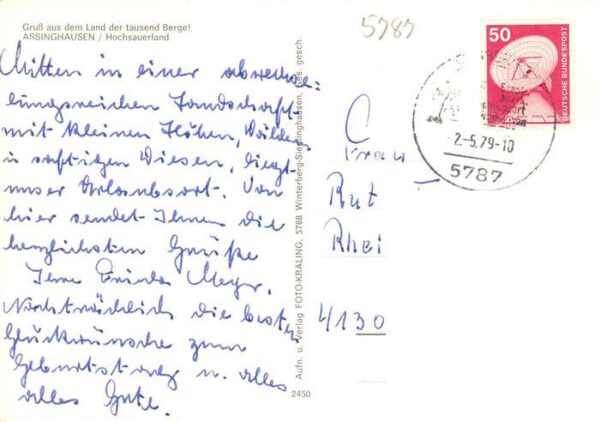 Gruß aus dem Land der tausend Berge!
ASSINGHAUSEN / Hochsauerland
5787
Mitten in einer abwechs=
lungsreichen Landschaft
mit kleinen Höhen, Wälder
u. saftigen Wiesen, liegt
unser Urlaubsort. Von
hier sendet Ihnen die
herzlichsten Grüße
Ihre Meyer.
Nachträglich die besten
Glückwünsche zum
Geburtstag u. alles
alles Gute.
Aufn. u. Verlag FOTO-KRALING, 5788 Winterberg-Siedlinghausen, Ges. gesch.
2450
50
DEUTSCHE BUNDESPOST
2.-5.79-10
5787
Frau
Rut
Rhei
4130